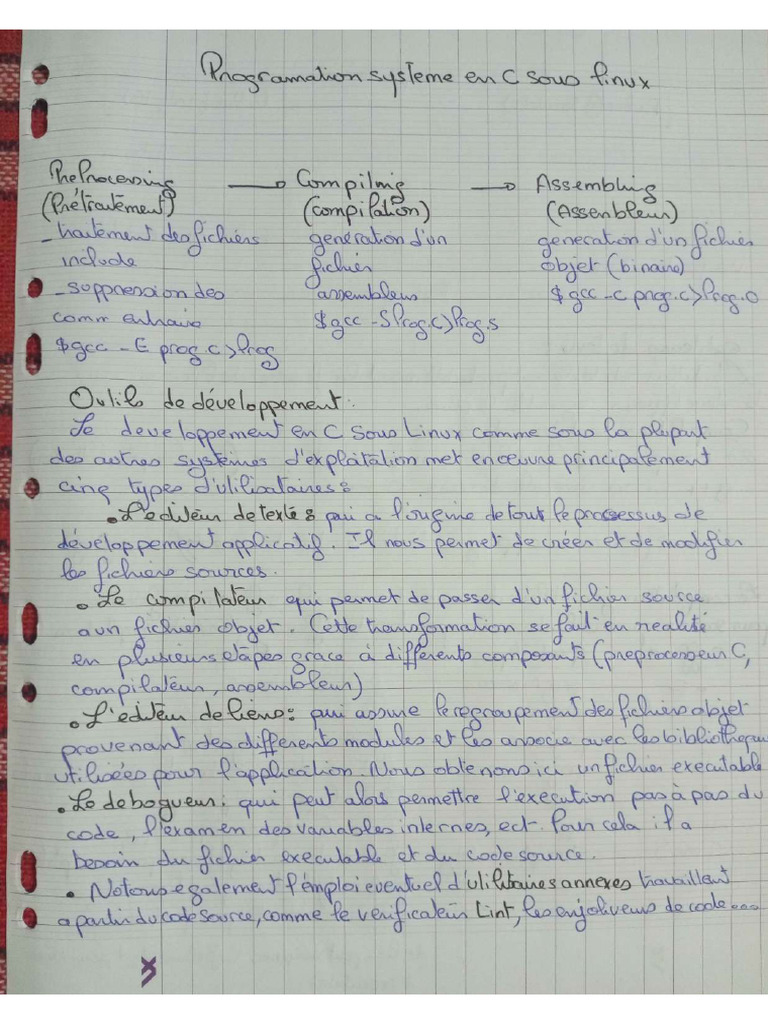 Programation système en C sous linux
PreProcessing → Compiling → Assembling
(Prétraitement) (compilation) (Assembleur)
- traitement des fichiers generation d'un generation d'un fichier
include fichier objet (binaire)
- suppression des assembleur $ gcc -c prog.c>Prog.o
commentaire $ gcc -S Prog.c>Prog.s
$ gcc -E prog.c>Prog
Outils de développement:
Le developpement en C Sous Linux comme sous la plupart
des autres systèmes d'exploitation met en œuvre principalement
cinq types d'utilisataires:
• L'editeur de texte: qui a l'origine de tout le processus de
développement applicatif. Il nous permet de créer et de modifier
les fichiers sources.
• Le compilateur qui permet de passer d'un fichier source
a un fichier objet. Cette transformation se fait en realité
en plusieurs etapes grace à differents composants (preprocesseur C,
compilateur, assembleur)
• L'editeur de liens: qui assure le regroupement des fichiers objet
provenant des differents modules et les associe avec les bibliotheques
utilisées pour l'application. Nous obtenons ici un fichier executable
• Le debogueur: qui peut alors permettre l'execution pas à pas du
code, l'examen des variables internes, ect. Pour cela il a
besoin du fichier executable et du code source.
• Notons egalement l'emploi eventuel d'utilitaires annexes travaillant
a partir du code source, comme le verificateur Lint, les enjoliveurs de code...